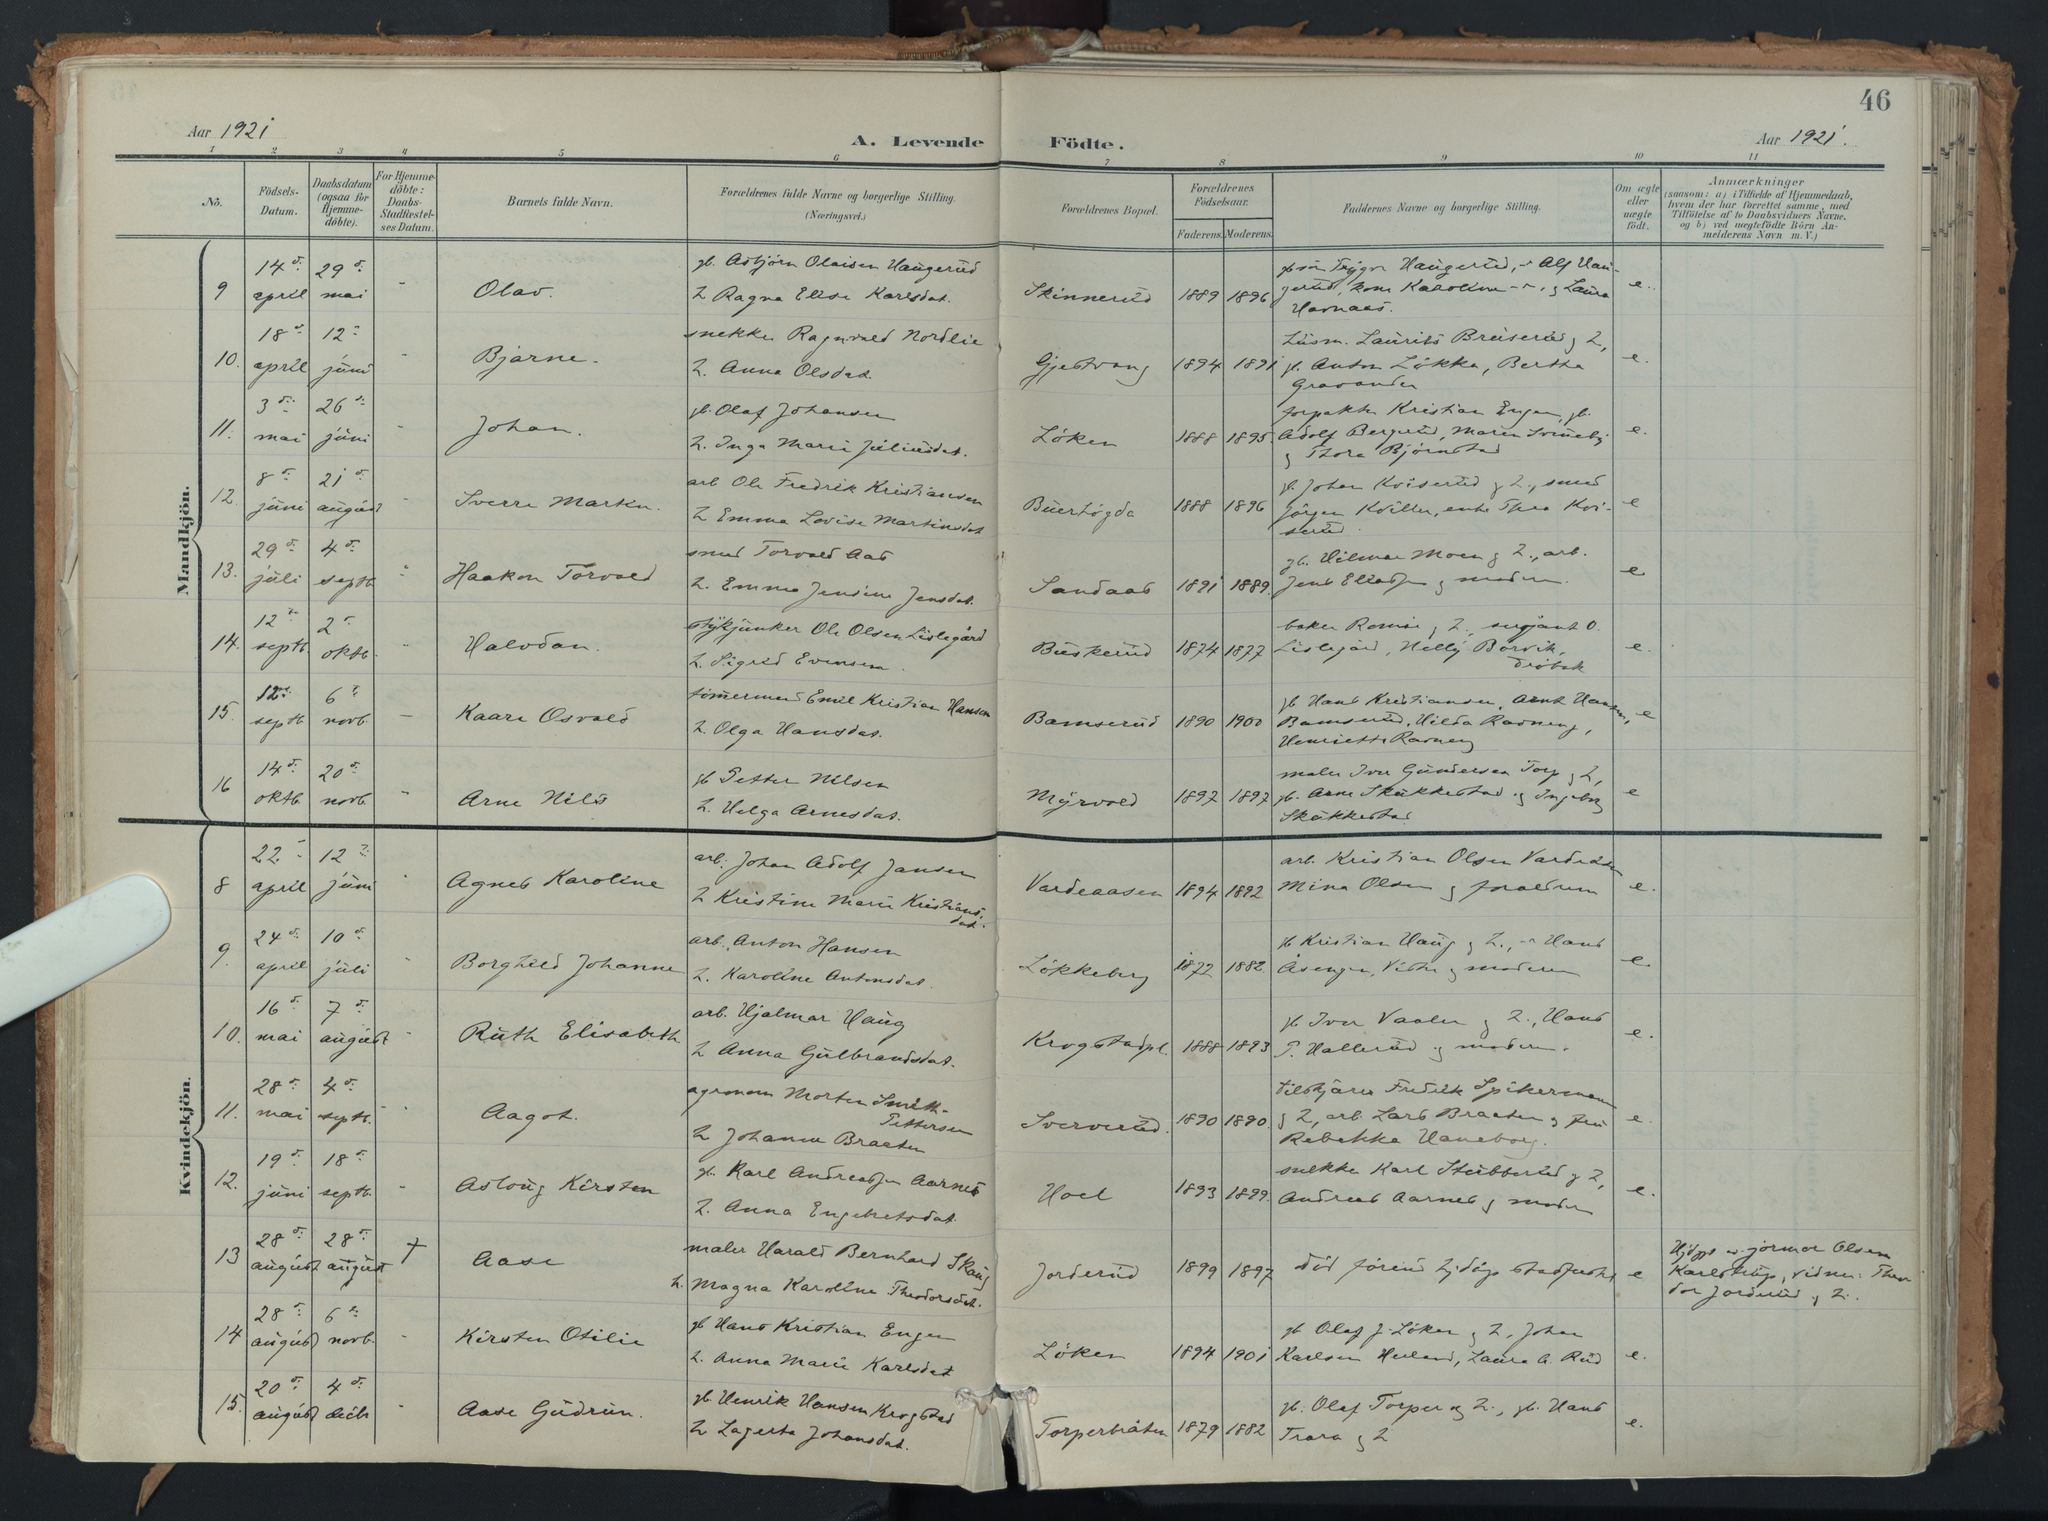 46
Aar 1921
A. Levende Födte.
Aar 1921.
1 2 3 4 5 6 7 8 9 10 11
No.
Födsels-
Datum.
Daabsdatum
(ogsaa for
Hjemme-
döbte).
For Hjemme-
döbte:
Daabs-
Stadfæstel-
ses Datum.
Barnets fulde Navn.
Forældrenes fulde Navne og borgerlige Stilling.
(Næringsvei.)
Forældrenes Bopæl.
Forældrenes
Födselsaar.
Faderens. Moderens.
Faddernes Navne og borgerlige Stilling.
Om ægte
eller
uægte
födt.
Anmærkninger
(saasom: a) i Tilfælde af Hjemmedaab,
hvem der har forrettet samme, med
Tilföielse af to Daabsvidners Navne,
og b) ved uægtefödte Börn An-
melderens Navn m. V.)
Mandkjön.
9 14 april 29 mai Olav.
gb. Asbjörn Olaisen Haugerud
h. Ragna Elise Karlsdat.
Skinnerud 1889 1896
Trygve Haugerud, Alf Hau-
gerud, kone Karoline, g Laura
Havnaas.
e.
10. 18 april 12 juni Bjarne.
snekker Ragnvald Nordlie
h. Anna Olsdat.
Gjestvang 1894 1891
Lüsm. Laurits Bruserud g h,
gb. Anton Løkka, Bertha
Gravander
e.
11. 3 mai 26 juni Johan.
gb. Olaf Johansen
h. Inga Marie Juliusdat.
Löken 1888 1895.
forpakter Kristian Engen, gb.
Adolf Bergerud, Maren Svineby
g Thora Björnstad
e.
12. 8 juni 21 august Sverre Martin.
arb Ole Fredrik Kristiansen
h Emma Lovise Martinsdat
Buerhögda 1888 1896
gb. Johan Kviserud g h., smed
Jörgen Kviller, enke Thea Kvi-
serud
e
13. 29 juli 4 septb. Haakon Torvald
smed Torvald Aas
h. Emma Jensine Jensdat.
Sandaas 1891 1889.
gb. Hilmar Moen g h., arb.
Jens Eliassen g moderen.
e
14. 12 septb. 2 oktb. Halvdan.
stykjunker Ole Olsen Lislegård
h. Sigrid Evensen.
Buskerud 1874 1877
baker Romsi g h., sersjant O.
Lislegård, Nelly Börvik,
Dröbak
e.
15. 12 septb. 6 novb. Kaare Osvald
tömermand Emil Kristian Hansen
h. Olga Hansdat.
Bamserud 1890 1900
gb Hans Kristiansen, Arnt Hansen,
Bamserud, Hilda Ravneng,
Henriette Ravneng
e
16 14 oktb. 20 novb. Arne Nils
gb Petter Nilsen
h. Helga Arnesdat.
Myrvold 1897 1897
maler Iver Gundersen Torp g h,
gb. Arne Skukkestad g Ingeborg
Skukkestad
e
Kvindekjön.
8 22 april 12 juni Agnes Karoline
arb. Johan Adolf Jansen
h Kristine Marie Kristians-
dat.
Vardeaasen 1894 1892
arb. Kristian Olsen Vardeåsen
Mina Olsen g forældrene
e.
9. 24 april 10 juli Borghild Johanne
arb. Anton Hansen
h. Karoline Antonsdat.
Lökkeberg 1872 1882.
gb Kristian Haug g h., Hans
Åsengen, g moderen
e.
10. 16 mai 7 august Ruth Elisabeth
arb. Hjalmar Haug
h Anna Gulbrandsdat.
Krogstadpl. 1888 1893
gb Iver Vaaler g h., Hans
P. Hallerud g moderen.
e.
11. 28 mai 4 septb. Aagot.
agronom Morten Smith-
Pettersen
h Johanne Braaten
Sververud. 1890 1890.
tilskjærer Fredrik Spikermann
g h, arb. Lars Braaten g fru
Rebekka Haneborg.
e.
12. 19 juni 18 septb. Aslaug Kirsten
gb. Karl Andreassen Aarnes
h. Anna Engebretsdat.
Hoel 1893 1899.
snekker Karl Stubberud g h,
Andreas Aarnes g moderen
e.
13 28 august 28 august † Aase
maler Harald Bernhard Skaug
h. Magna Karoline Theodorsdat.
Jorderud 1899 1897
död förend hjdåps stadfestet
e
Hjdöpt v. jormor Olsen
Karlstrup, vidner: Theo-
dor Jorderud g h.
14 28 august 6 novb. Kirsten Otilie
gb Hans Kristian Engen
h. Anna Marie Karlsdat
Löken 1894 1901
gb Olaf J. Löken g h, Johan
Karlsen Herland, Laura A. Rud
e.
15. 20 august 4 decbr Aase Gudrun.
gb. Henrik Hansen Krogstad
h Lagerta Johansdat.
Torperbråten 1879 1882
gb. Olaf Torper og h., gb. Hans
Trara g h
e.